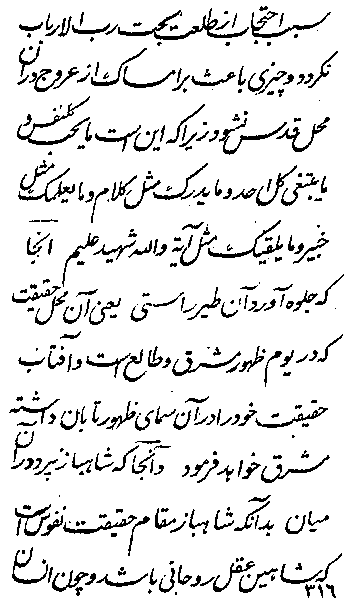 سبب احتجاب از طلعت بهجت رب الارباب
نگردد و چیزی باعث بر امساک از عروج در آن
محل قدس نشود زیرا که این است ما یحب کلنفس و
ما یبتغی کل احد و ما یدرک مثل کلام و ما یعلمک مثل
خبیر و ما یلقیک مثل آیة والله شهید علیم آنجا
که جلوه آورد آن طیر راستی یعنی آن محل حقیقت
که در یوم ظهور مشرق و طالع است و آفتاب
حقیقت خود را در آن سمای ظهور تابان داشته
مشرق خواهد فرمود و آنجا که شاهباز پرد در آن
میان بدانکه شاهباز مقام حقیقت نفوس است
که شاهین عقل روحانی باشد و چون انسان
۳۱۶